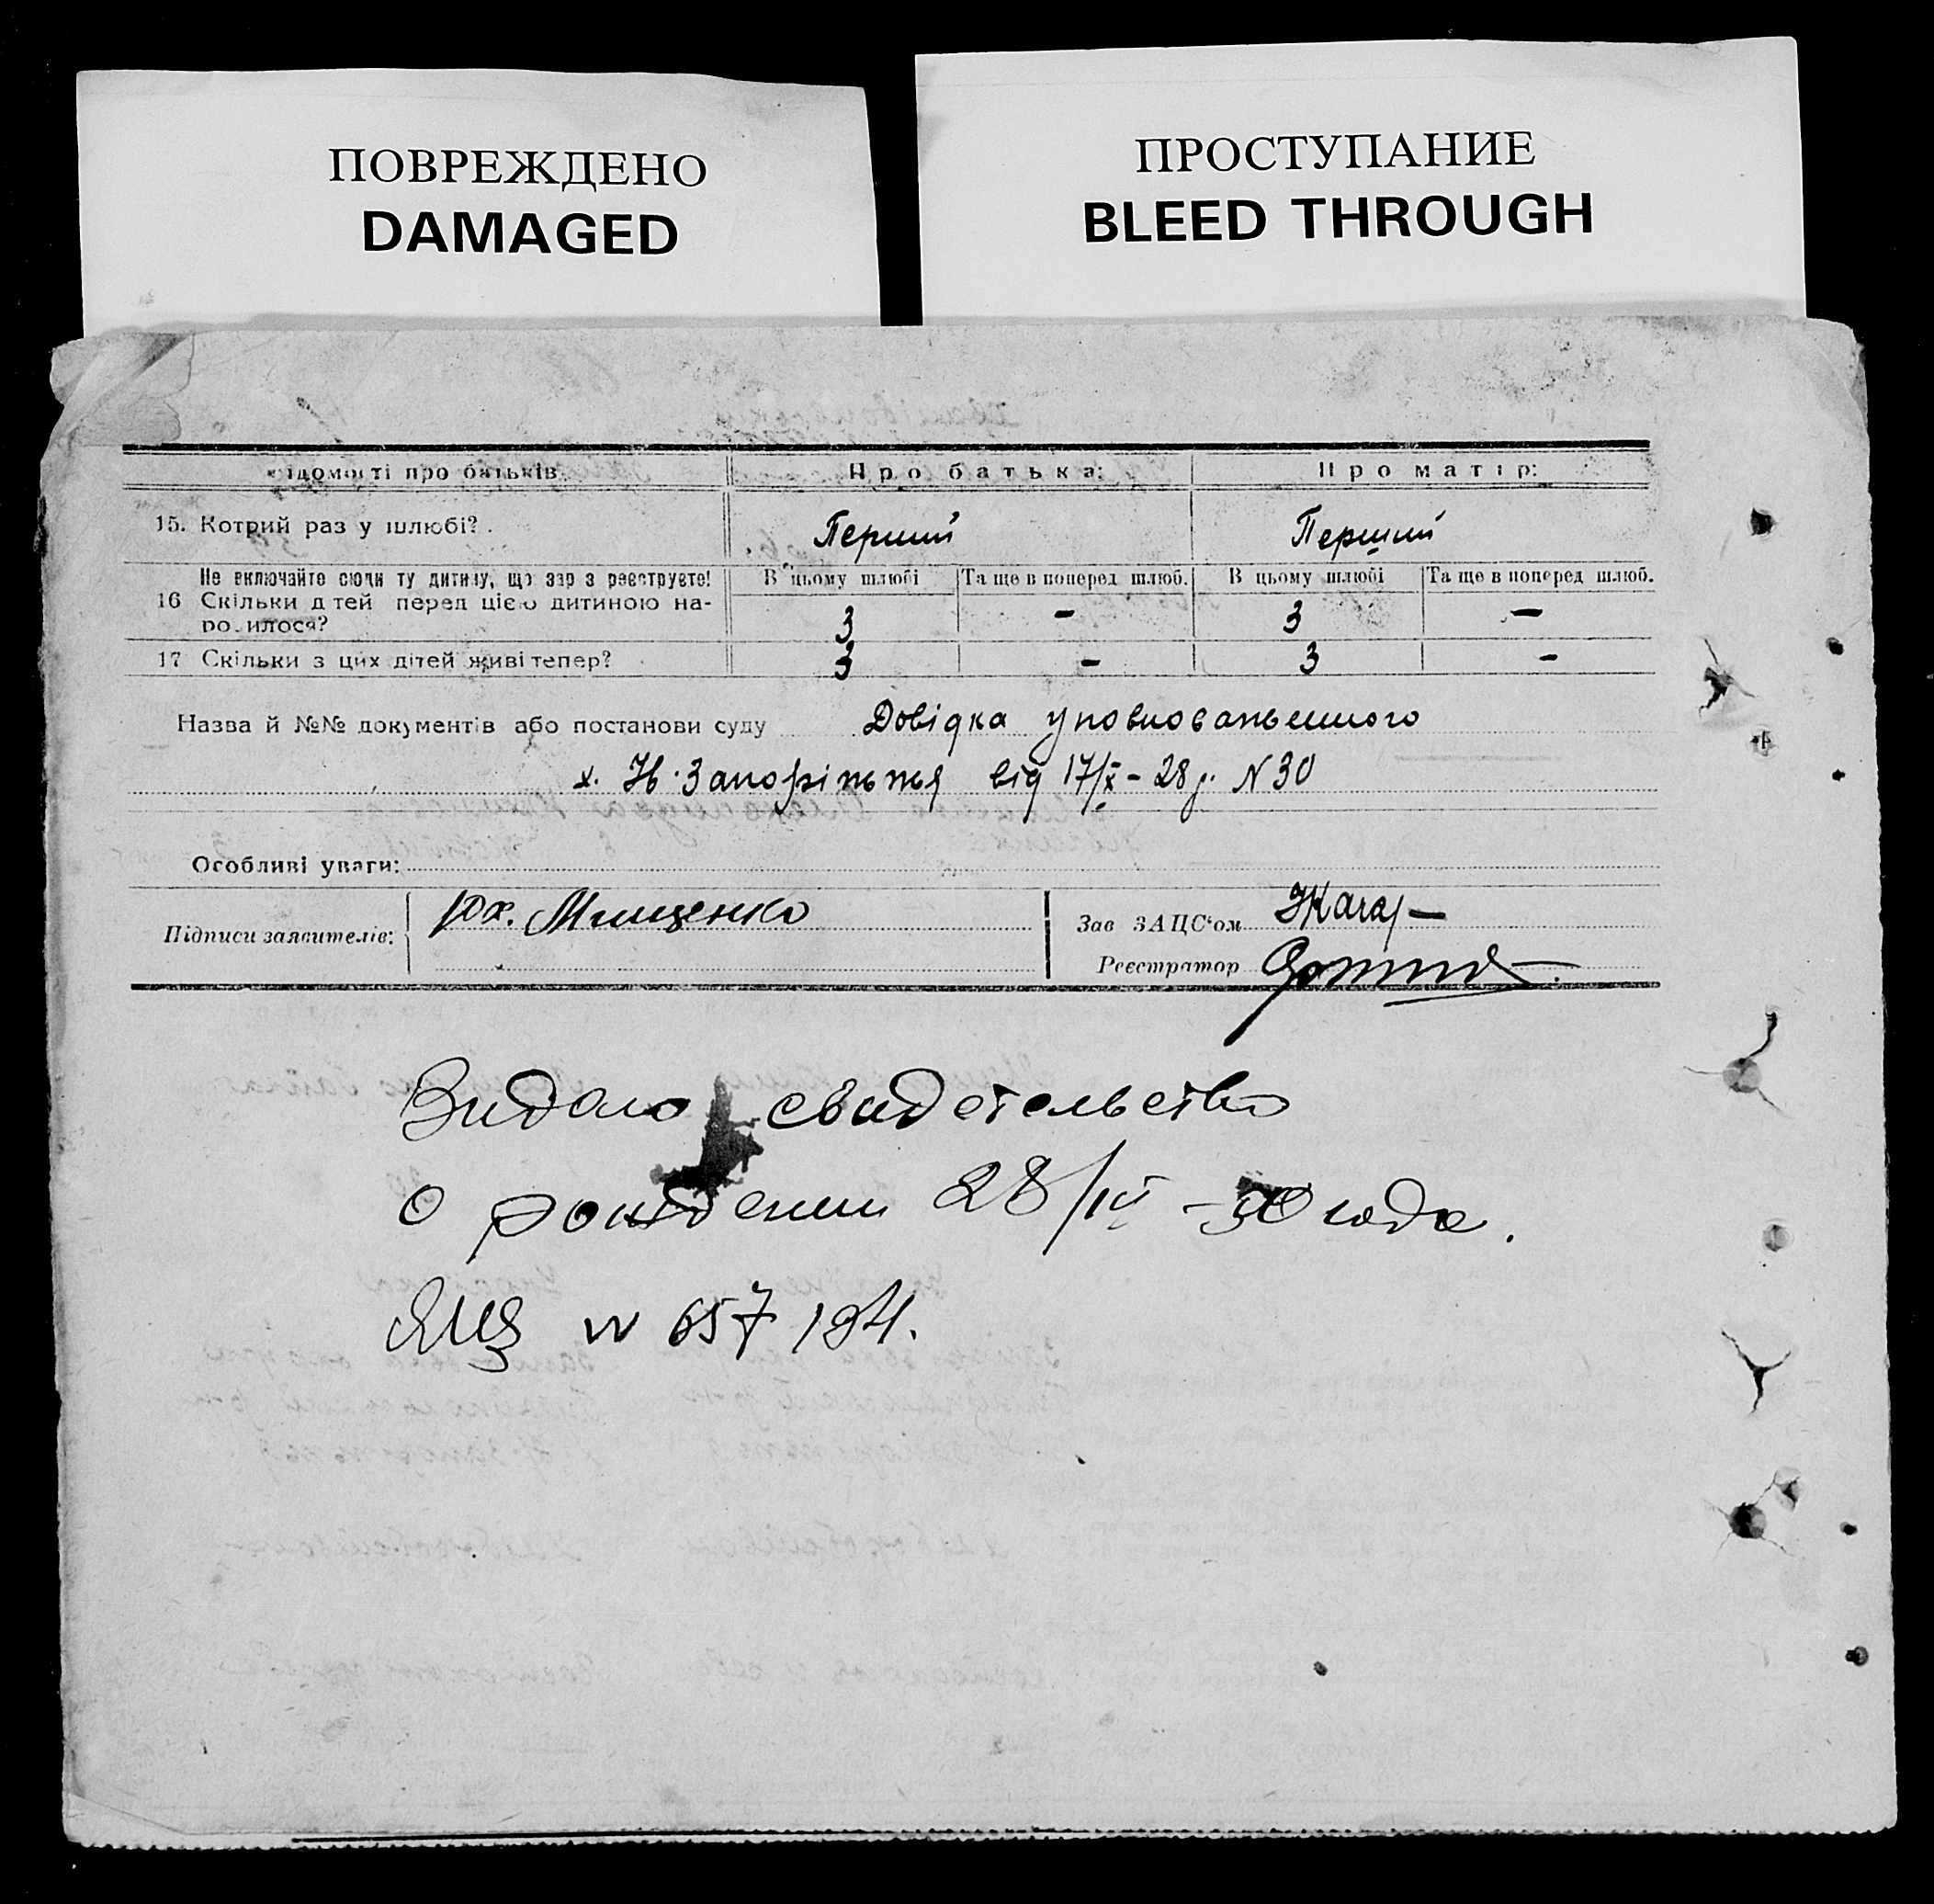 ПОВРЕЖДЕНО
DAMAGED
ПРОСТУПАНИЕ
BLEED THROUGH
ідомості про батьків
Про батька:
Про матір:
15. Котрий раз у шлюбі?
Перший
Перший
Не включайте сюди ту дитину, що зар з реєструєте!
16 Скільки д тей перед цією дитиною на-
ро илося?
В цьому шлюбі
Та ще в поперед шлюб.
В цьому шлюбі
Та ще в поперед шлюб.
3 — 3 —
17 Скільки з цих дітей живі тепер?
3 - 3 -
Назва й №№ документів або постанови суду Довідка уповноваженного
х. Н. Запоріжжя від 17/X - 28 р. N 30
Особливі уваги:
Підписи заявителів: Юх. Мищенко
Зав ЗАЦС'ом
Реєстратор
Видано свидетельство
о рождении 28/IV - 50 года.
ЯЦ N 657194.